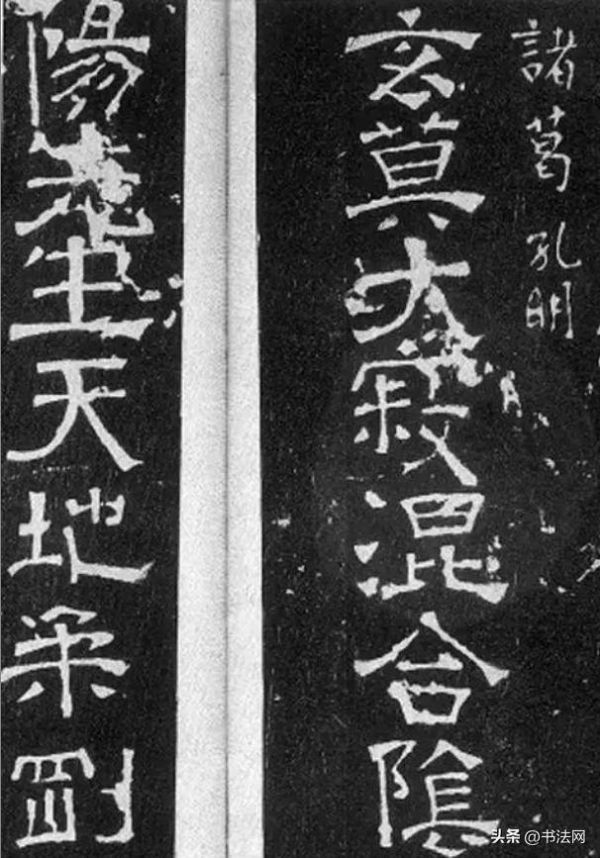 諸葛孔明
玄莫大寂混合陰
陽生天地柔剛
头条 @书法网